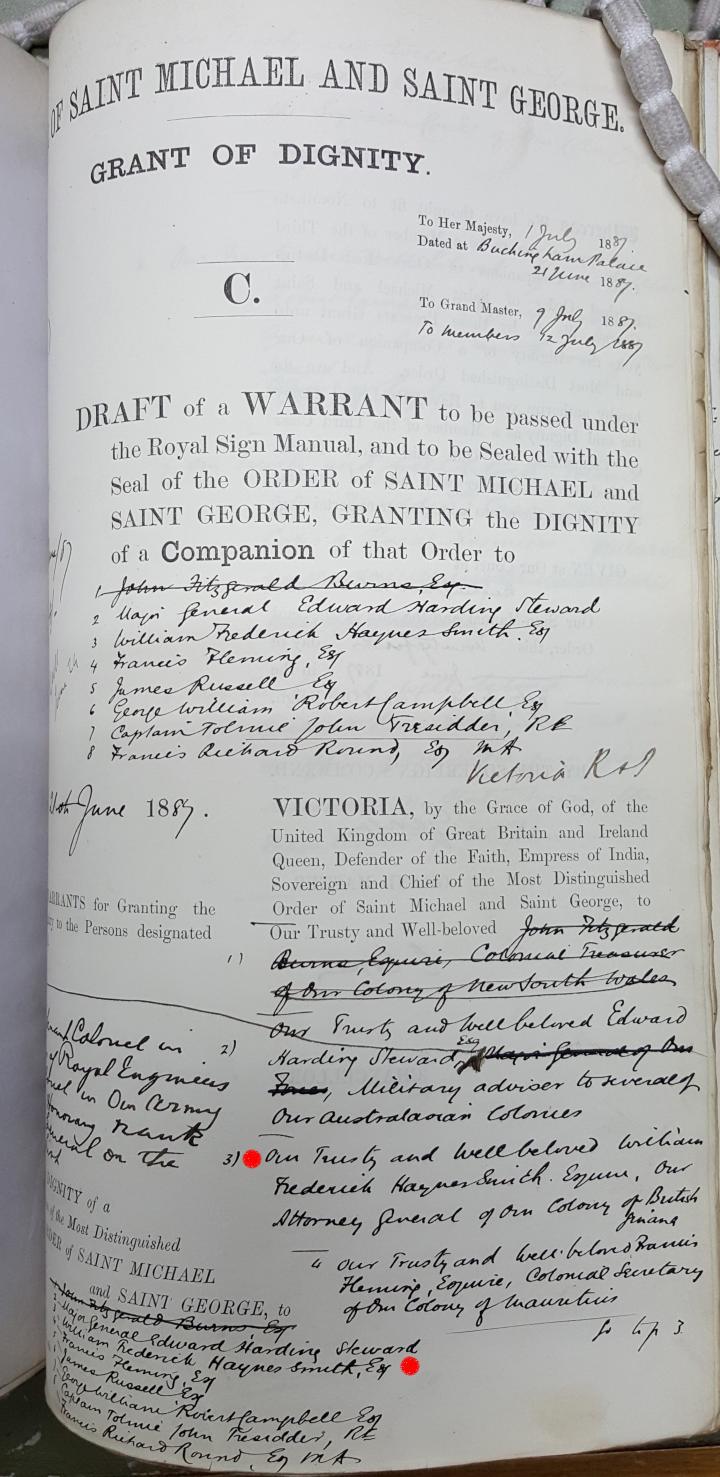 OF SAINT MICHAEL AND SAINT GEORGE.
GRANT OF DIGNITY.
To Her Majesty, 1 July 1887.
Dated at Buckingham Palace
21 June 1887.
C.
To Grand Master, 9 July 1887.
To members 12 July 1887
DRAFT of a WARRANT to be passed under
the Royal Sign Manual, and to be Sealed with the
Seal of the ORDER of SAINT MICHAEL and
SAINT GEORGE, GRANTING the DIGNITY
of a Companion of that Order to
1 John Fitzgerald Burns, Esq.
2 Major General Edward Harding Steward
3 William Frederick Haynes Smith. Esq
4 Francis Fleming, Esq
5 James Russell Esq
6 George William Robert Campbell Esq
7 Captain Tolmie John Tresidder, RE
8 Francis Richard Round, Esq MA
Victoria R&I
June 1887.
VICTORIA, by the Grace of God, of the
United Kingdom of Great Britain and Ireland
Queen, Defender of the Faith, Empress of India,
Sovereign and Chief of the Most Distinguished
Order of Saint Michael and Saint George, to
Our Trusty and Well-beloved John Fitzgerald
Burns, Esquire, Colonial Treasurer
of Our Colony of New South Wales
WARRANTS for Granting the
to the Persons designated
1)
2) Our Trusty and Well beloved Edward
Harding Steward Esq Major General of Our
Forces, Military adviser to several of
Our Australasian Colonies
Colonel in
Royal Engineers
in Our Army
Honorary rank
General on the
3) Our Trusty and Well beloved William
Frederick Haynes Smith. Esquire, Our
Attorney General of Our Colony of British
Guiana
4 Our Trusty and Well-beloved Francis
Fleming, Esquire, Colonial Secretary
of Our Colony of Mauritius
Go to p 3
DIGNITY of a
of the Most Distinguished
ORDER of SAINT MICHAEL
and SAINT GEORGE, to
John Fitzgerald Burns Esq
2 Major General Edward Harding Steward
William Frederick Haynes Smith, Esq
Francis Fleming, Esq
James Russell Esq
George William Robert Campbell Esq
Captain Tolmie John Tresidder, RE
Francis Richard Round, Esq MA